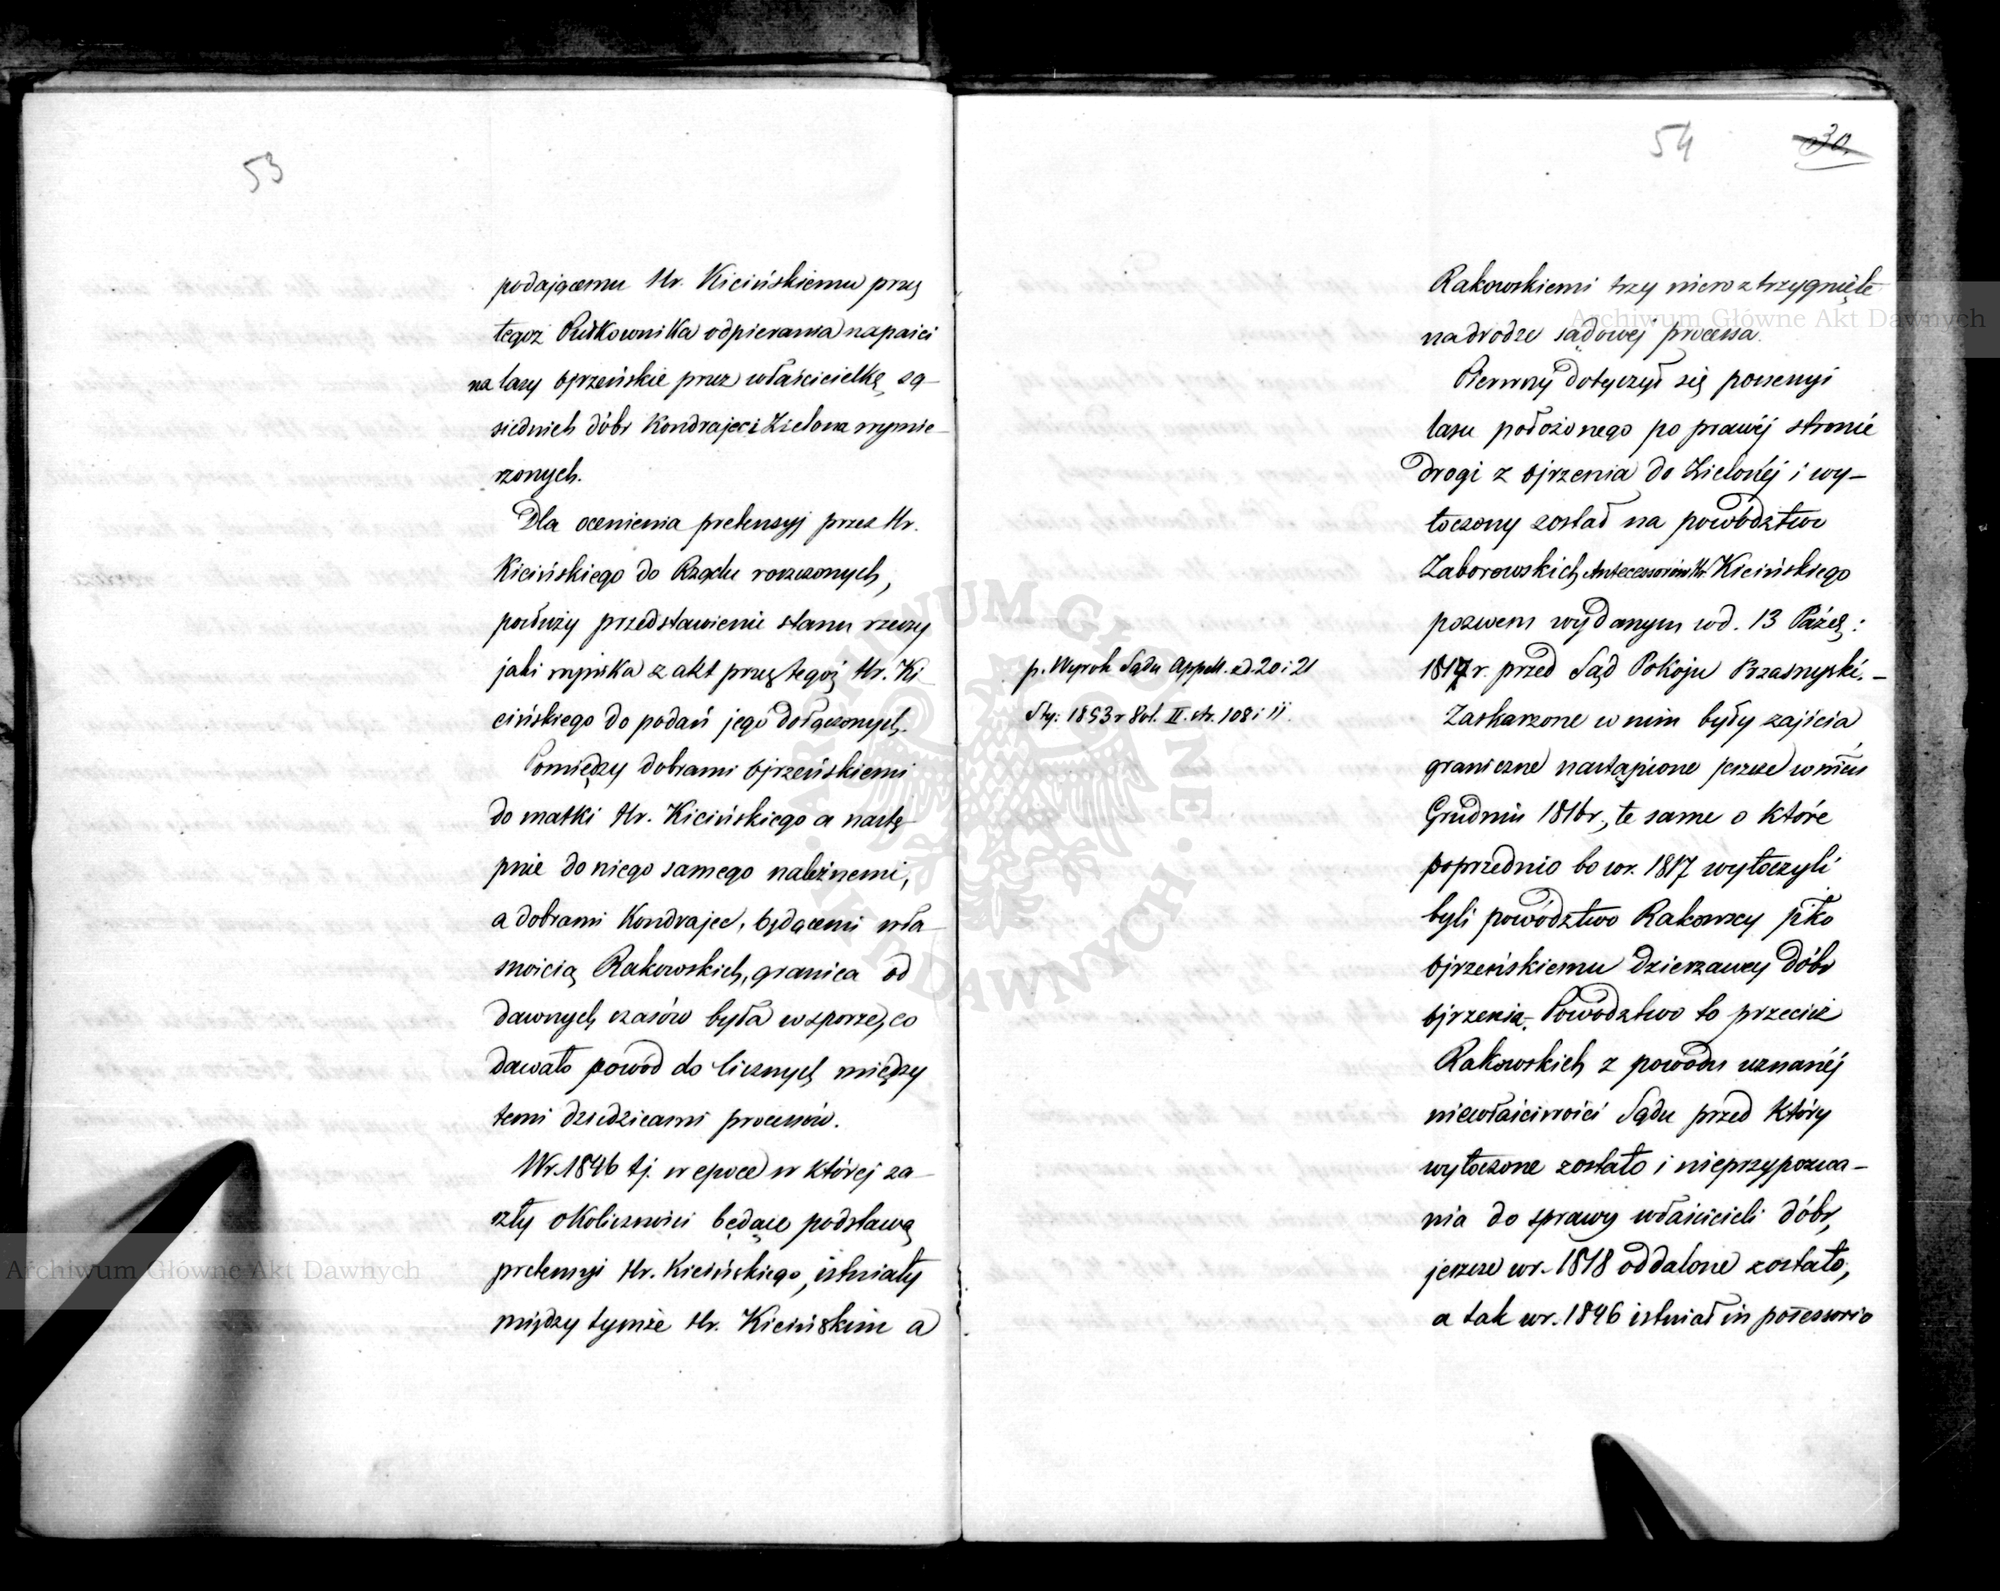 53
podającemu Hr. Kicińskiemu przez
tegoż Pułkownika odpierania napaści
na lasy Ojrzeńskie przez właścicielkę są-
siednich dóbr Kondrajec i Zielona wymie-
rzonych.
Dla ocenienia pretensyj przez Hr.
Kicińskiego do Rządu roszczonych,
posłuży przedstawienie stanu rzeczy
jaki wynika z akt przez tegoż Hr. Ki-
cińskiego do podań jego dołączonych.
Pomiędzy dobrami Ojrzeńskiemi
do matki Hr. Kicińskiego a nastę-
pnie do niego samego należnemi,
a dobrami Kondrajec, będącemi wła-
snością Rakowskich, granica od
dawnych czasów była w sporze, co
dawało powód do licznych między
temi dziedzicami processów.
W r. 1846 tj. w epoce w której za-
szły okoliczności będące podstawą
pretensyi Hr. Kicińskiego, istniały
między tymże Hr. Kicińskim a
54
30.
Rakowskiemi trzy nierozstrzygnięte
na drodze sądowej processa.
Pierwszy dotyczył się possessyi
lasu położonego po prawéj stronie
drogi z Ojrzenia do Zielonéj i wy-
toczony został na powództwo
Zaborowskich Antecessorów Hr. Kicińskiego
pozwem wydanym w d. 13 Paźdz:
1817 r. przed Sąd Pokoju Przasnyski. -
p. Wyrok Sądu Appell. z d. 20 i 21
Sty: 1853 r Vol. II. str. 108 i 11.
Zaskarzone w nim były zajścia
graniczne nastąpione jeszcze w mcu
Grudniu 1816 r., te same o które
poprzednio bo w r. 1817 wytoczyli
byli powództwo Rakowscy pko
Ojrzeńskiemu dzierzawcy dóbr
Ojrzenia. Powodztwo to przecież
Rakowskich z powodu uznanéj
niewłaściwości Sądu przed który
wytoczone zostało i nieprzypozwa-
nia do sprawy właścicieli dóbr,
jeszcze w r. 1818 oddalone zostało,
a tak w r. 1846 istniał in possessorio
Archiwum Główne Akt Dawnych
Archiwum Główne Akt Dawnych
ARCHIWUM GŁÓWNE AKT DAWNYCH